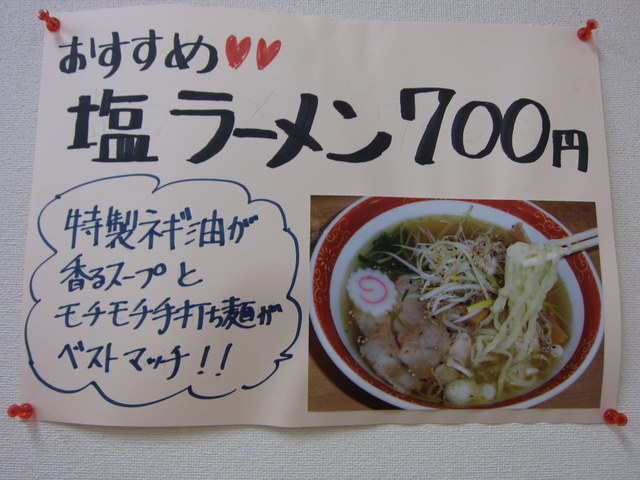 おすすめ♥♥
塩ラーメン700円
特製ネギ油が
香るスープと
モチモチ手打ち麺が
ベストマッチ!!